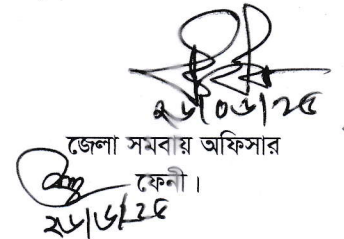 ২৬/০৬/২৫
জেলা সমবায় অফিসার
ফেনী।
২৬/৬/২৫